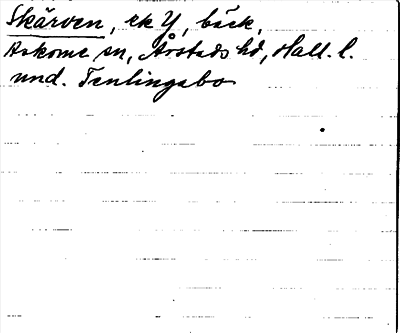 Skärven, ek Y, bäck,
Askome sn, Årstads hd, Hall. l.
und. Tenlingabo